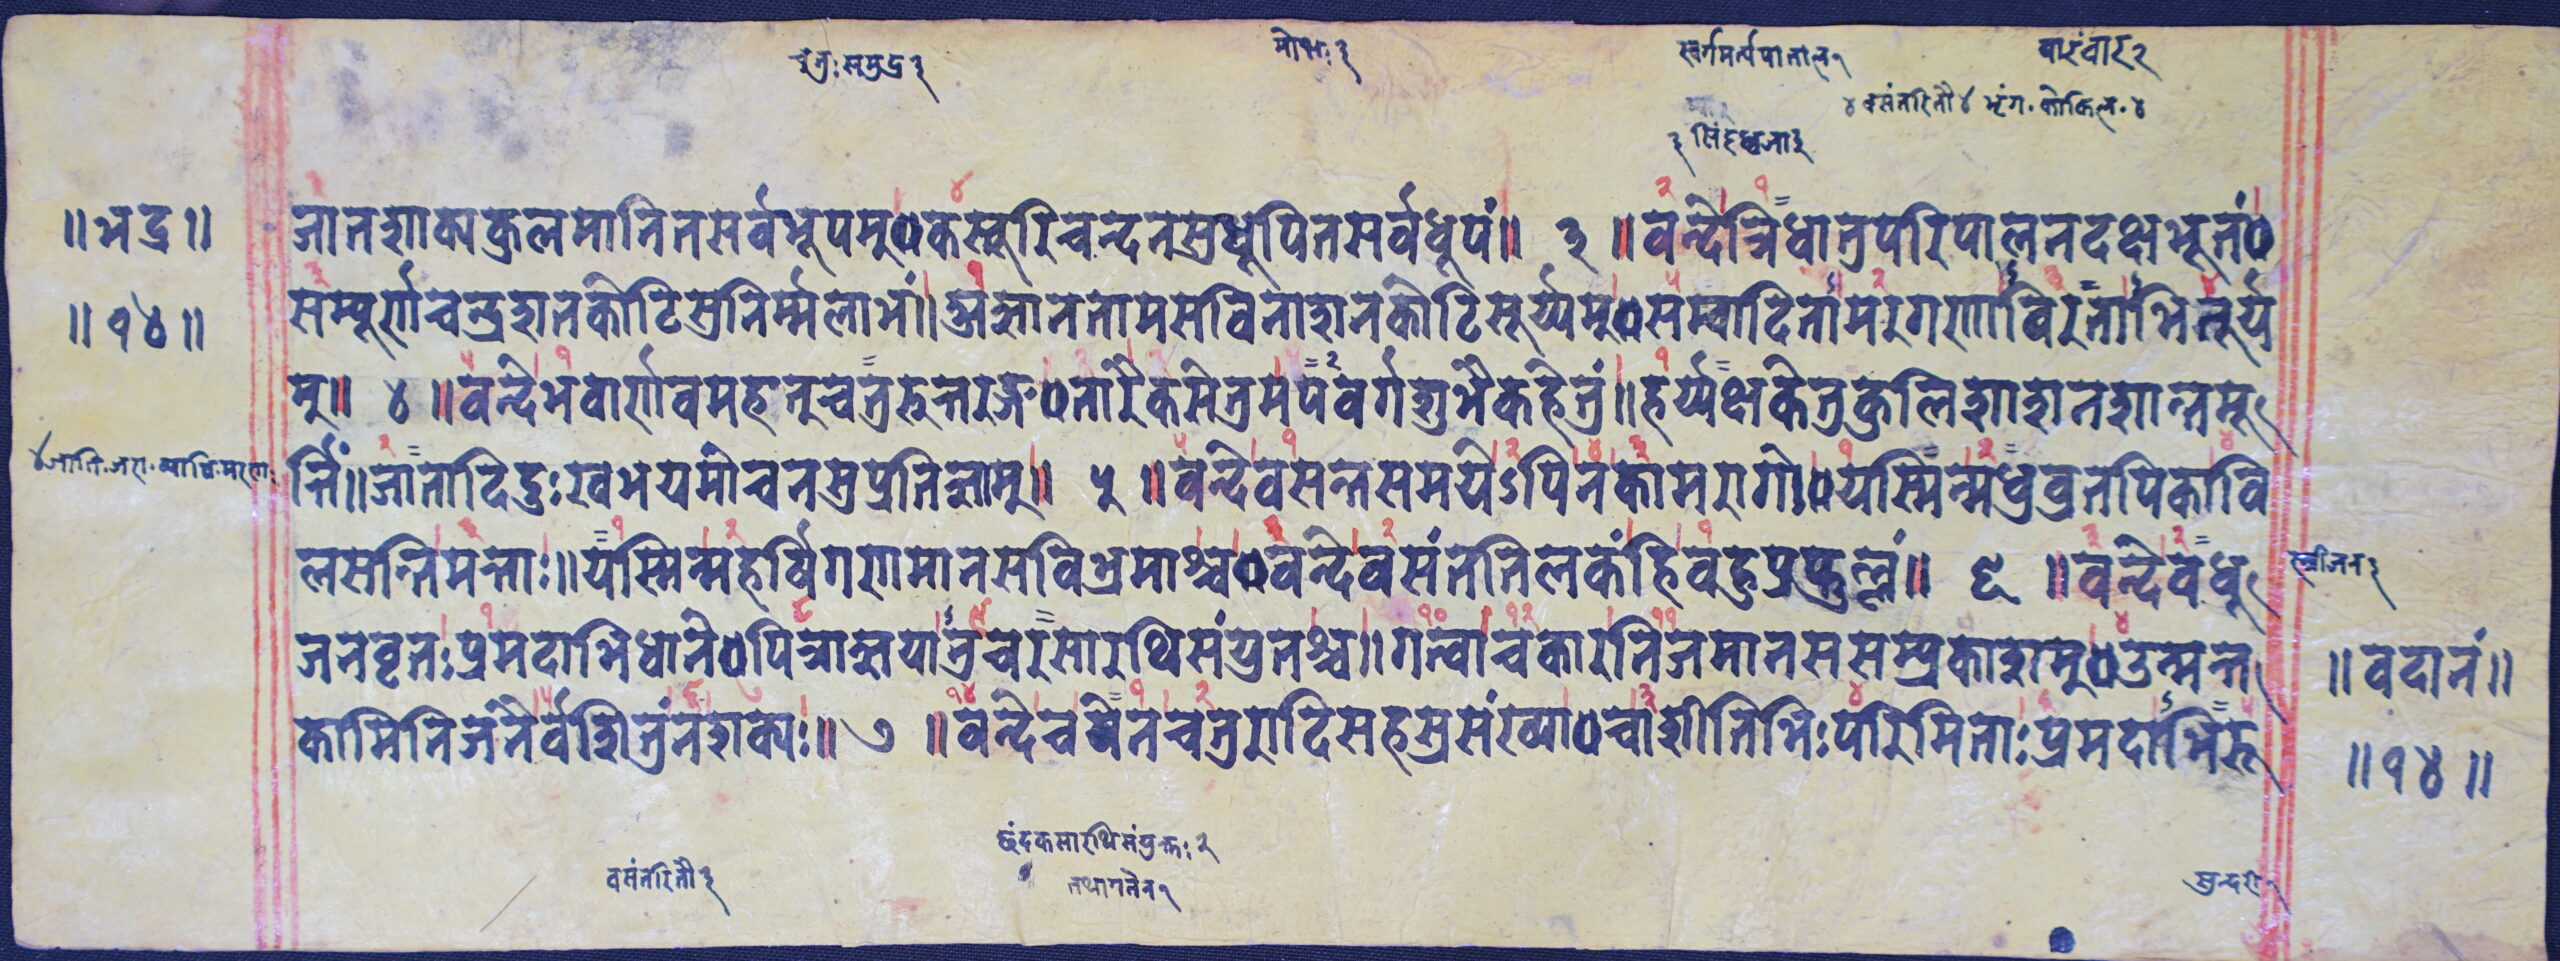 चंतुःसमुद्र ३ मोक्षः ३ स्वर्गमर्त्यपाताल १ वारंवार २
४ वसंतरितौ ४ भृंग . कोकिल . ४
३ सिंहध्वजा ३
॥ भद्र १॥ जातशाक्यकुलमानितसर्वभूपम् कस्तूरिचन्दनसुधूपितसर्वधूपं ॥ ३ ॥ वन्देत्रिधातुपरिपालनदक्षभूतं
॥ १४ ॥ सम्पूर्णचन्द्रशतकोटिसुनिर्म्मलाभां । अज्ञानतामसविनाशनकोटिसूर्य्यम् सम्वादितामरगणाविरताभितूर्य
म् ॥ ४ ॥ वन्देभवार्णवमहत्तुचतुरुत्तरङ्ग तारैकसेतुमपवर्गशुभैकहेतुं ॥ हर्य्यक्षकेतुकुलिशाशनशान्तमू
४ जाति . जरा . व्याधि . मरण र्त्तिं ॥ जातादिदुःखभयमोचनसुप्रतिज्ञाम् ॥ ५ ॥ वन्देवसन्तसमयेऽपिनकामरागो यस्मिन्मधुव्रतपिकावि
लसन्तिमत्ताः ॥ यस्मिन्महर्षिगणमानसविभ्रमाश्च वन्देवसंततिलकंहिवहुप्रफुल्लं ॥ ६ ॥ वन्देवधू स्त्रीजन ३
जनवृतःप्रमदाभिधाने पित्राज्ञयातुचरसारथिसंयुतश्च ॥ गत्वाचकारनिजमानससम्प्रकाशम् उन्मत्त ॥ वदानं ॥
कामिनिजनैर्वशितुंनशक्यः ॥ ७ ॥ वन्देचयेनचतुरादिसहस्रसंख्या चाशीतिभिःपरिमिताःप्रमदाभिरू ॥ १४ ॥
छंदकसारथिसंयुक्तः २
वसंतरितौ ३ तथागतेन १ सुन्दरी १